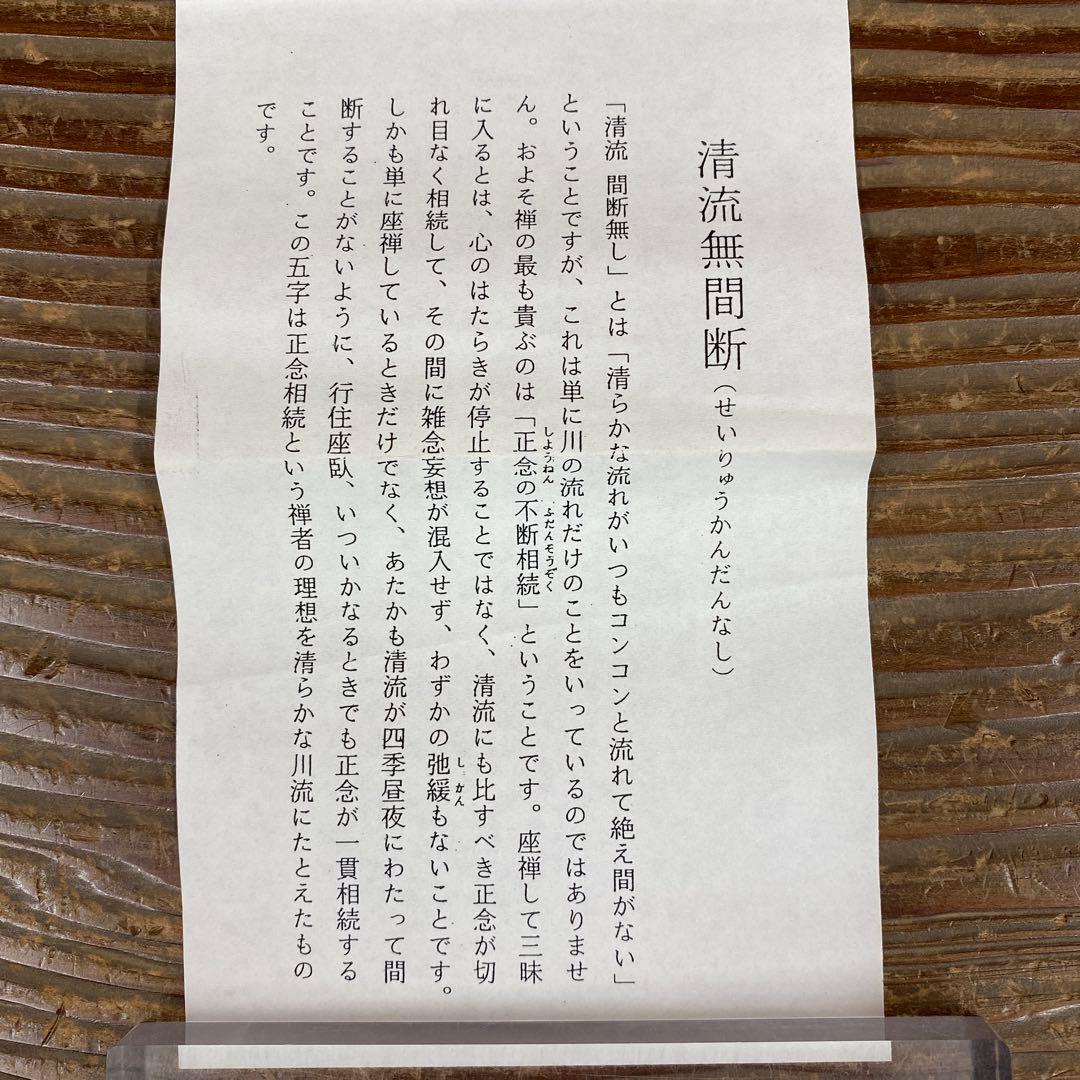 清流無間断（せいりゅうかんだんなし）
「清流 間断無し」とは「清らかな流れがいつもコンコンと流れて絶え間がない」
ということですが、これは単に川の流れだけのことをいっているのではありませ
ん。およそ禅の最も貴ぶのは「正念の不断相続」ということです。座禅して三昧
しようねん ふだんそうぞく
に入るとは、心のはたらきが停止することではなく、清流にも比すべき正念が切
れ目なく相続して、その間に雑念妄想が混入せず、わずかの弛緩もないことです。
しかん
しかも単に座禅しているときだけでなく、あたかも清流が四季昼夜にわたって間
断することがないように、行住座臥、いついかなるときでも正念が一貫相続する
ことです。この五字は正念相続という禅者の理想を清らかな川流にたとえたもの
です。